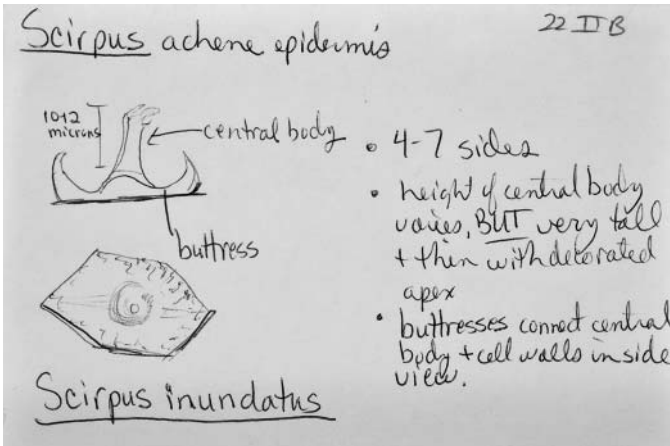 Scirpus achene epidermis
22 II B
10-12
microns
central body
buttress
• 4-7 sides
• height of central body
varies, BUT very tall
+ thin with decorated
apex
• buttresses connect central
body + cell walls in side
view.
Scirpus inundatus